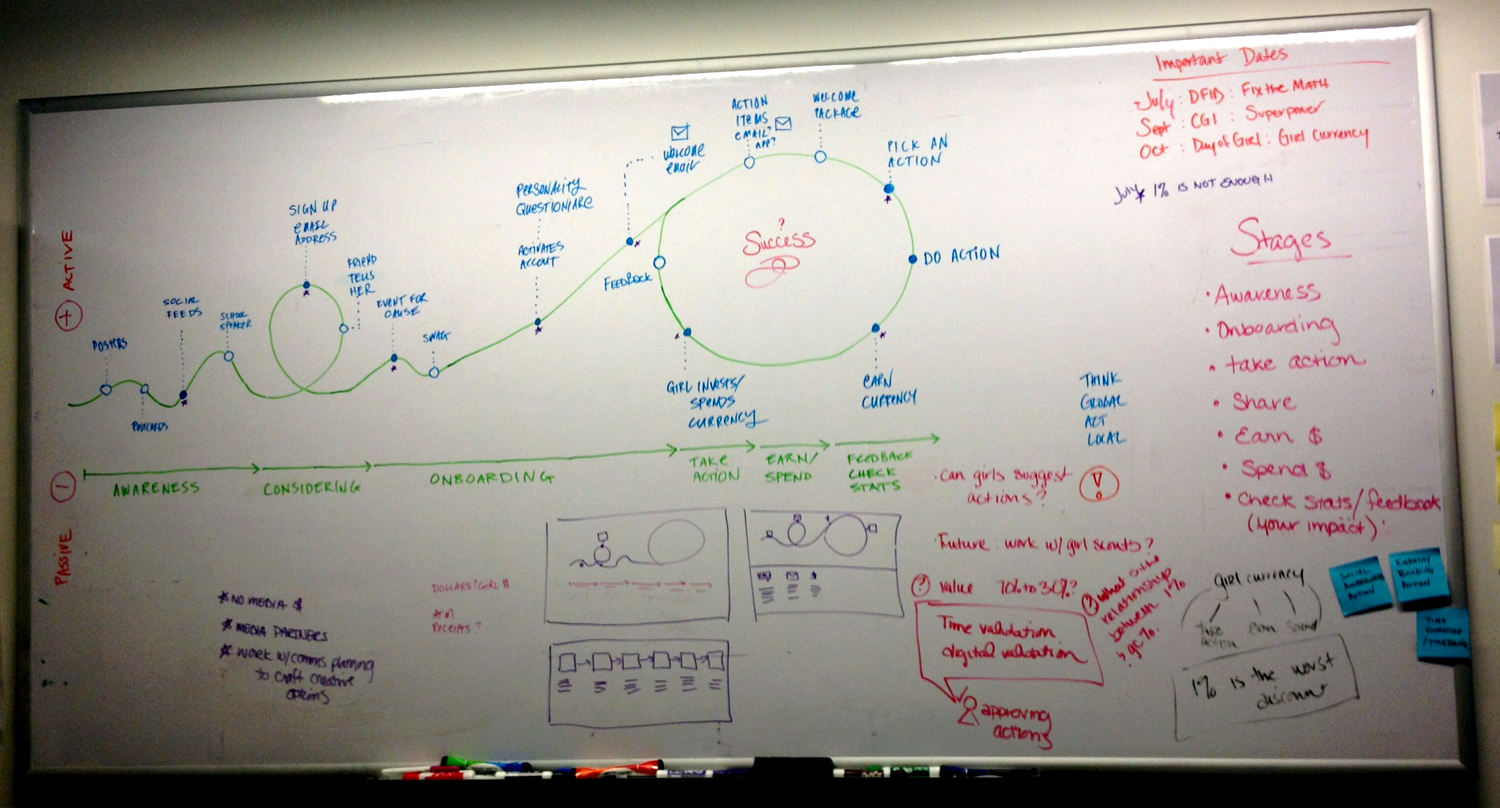 Important Dates
July : DFID : Fix the Math
Sept : CGI : Superpower
Oct : Day of Girl : Girl Currency
July 1% IS NOT ENOUGH
+ ACTIVE
- PASSIVE
POSTERS
POSTCARDS
SOCIAL
FEEDS
SCHOOL
SPEAKER
SIGN UP
EMAIL
ADDRESS
FRIEND
TELLS
HER
EVENT FOR
CAUSE
SWAG
PERSONALITY
QUESTIONIARE
ACTIVATES
ACCOUT
WELCOME
EMAIL
ACTION
ITEMS
EMAIL?
APP?
WELCOME
PACKAGE
PICK AN
ACTION
DO ACTION
EARN
CURRENCY
GIRL INVESTS/
SPENDS
CURRENCY
FEEDBACK
?
Success
AWARENESS
CONSIDERING
ONBOARDING
TAKE
ACTION
EARN/
SPEND
FEEDBACK
CHECK
STATS
THINK
GLOBAL
ACT
LOCAL
Stages
• Awareness
• Onboarding
• take action
• Share
• Earn $
• Spend $
• Check stats/feedback
(your impact)
• Can girls suggest
actions?
!
• Future: work w/ girl scouts?
? value 70% to 30%?
? What is the
relationship
between 1%
Time validation
digital validation
approving
actions
* NO MEDIA $
* MEDIA PARTNERS
* WORK w/comms planning
to craft creative
options
DOLLARS? GIRL #
ATM
RECEIPTS?
girl currency
Take
action
earn
spend
1% is the worst
discount